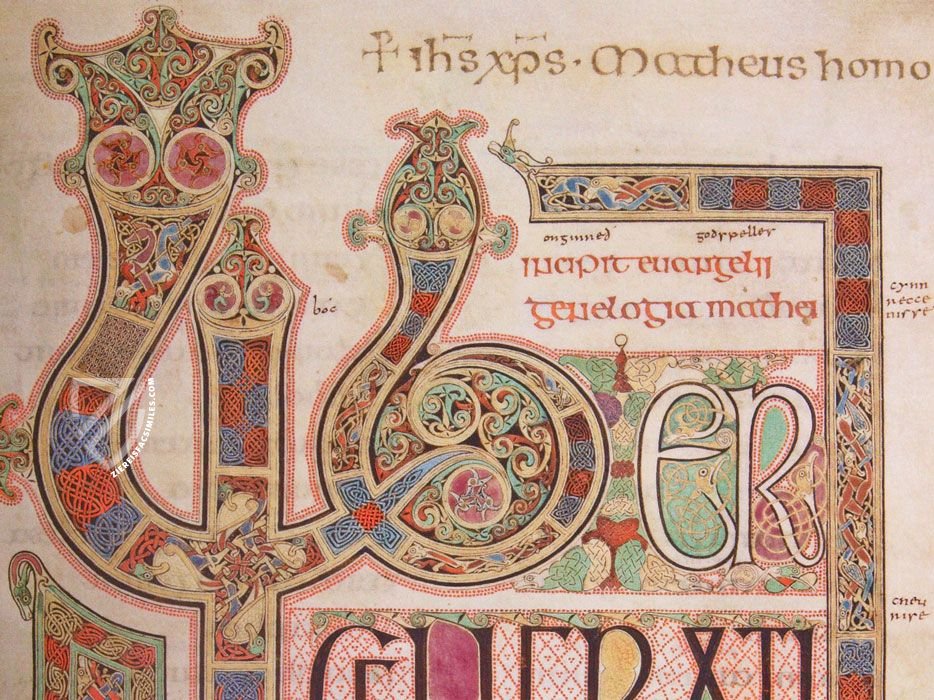 ☩ ihs̄ xp̄s · Matheus homo
onginneð godspelles
incipit euangelii
genelogia mathei
boc
cynn
recce
nisse
Liber
cneu
nise
GENERATI
ZIEREISFACSIMILES.COM